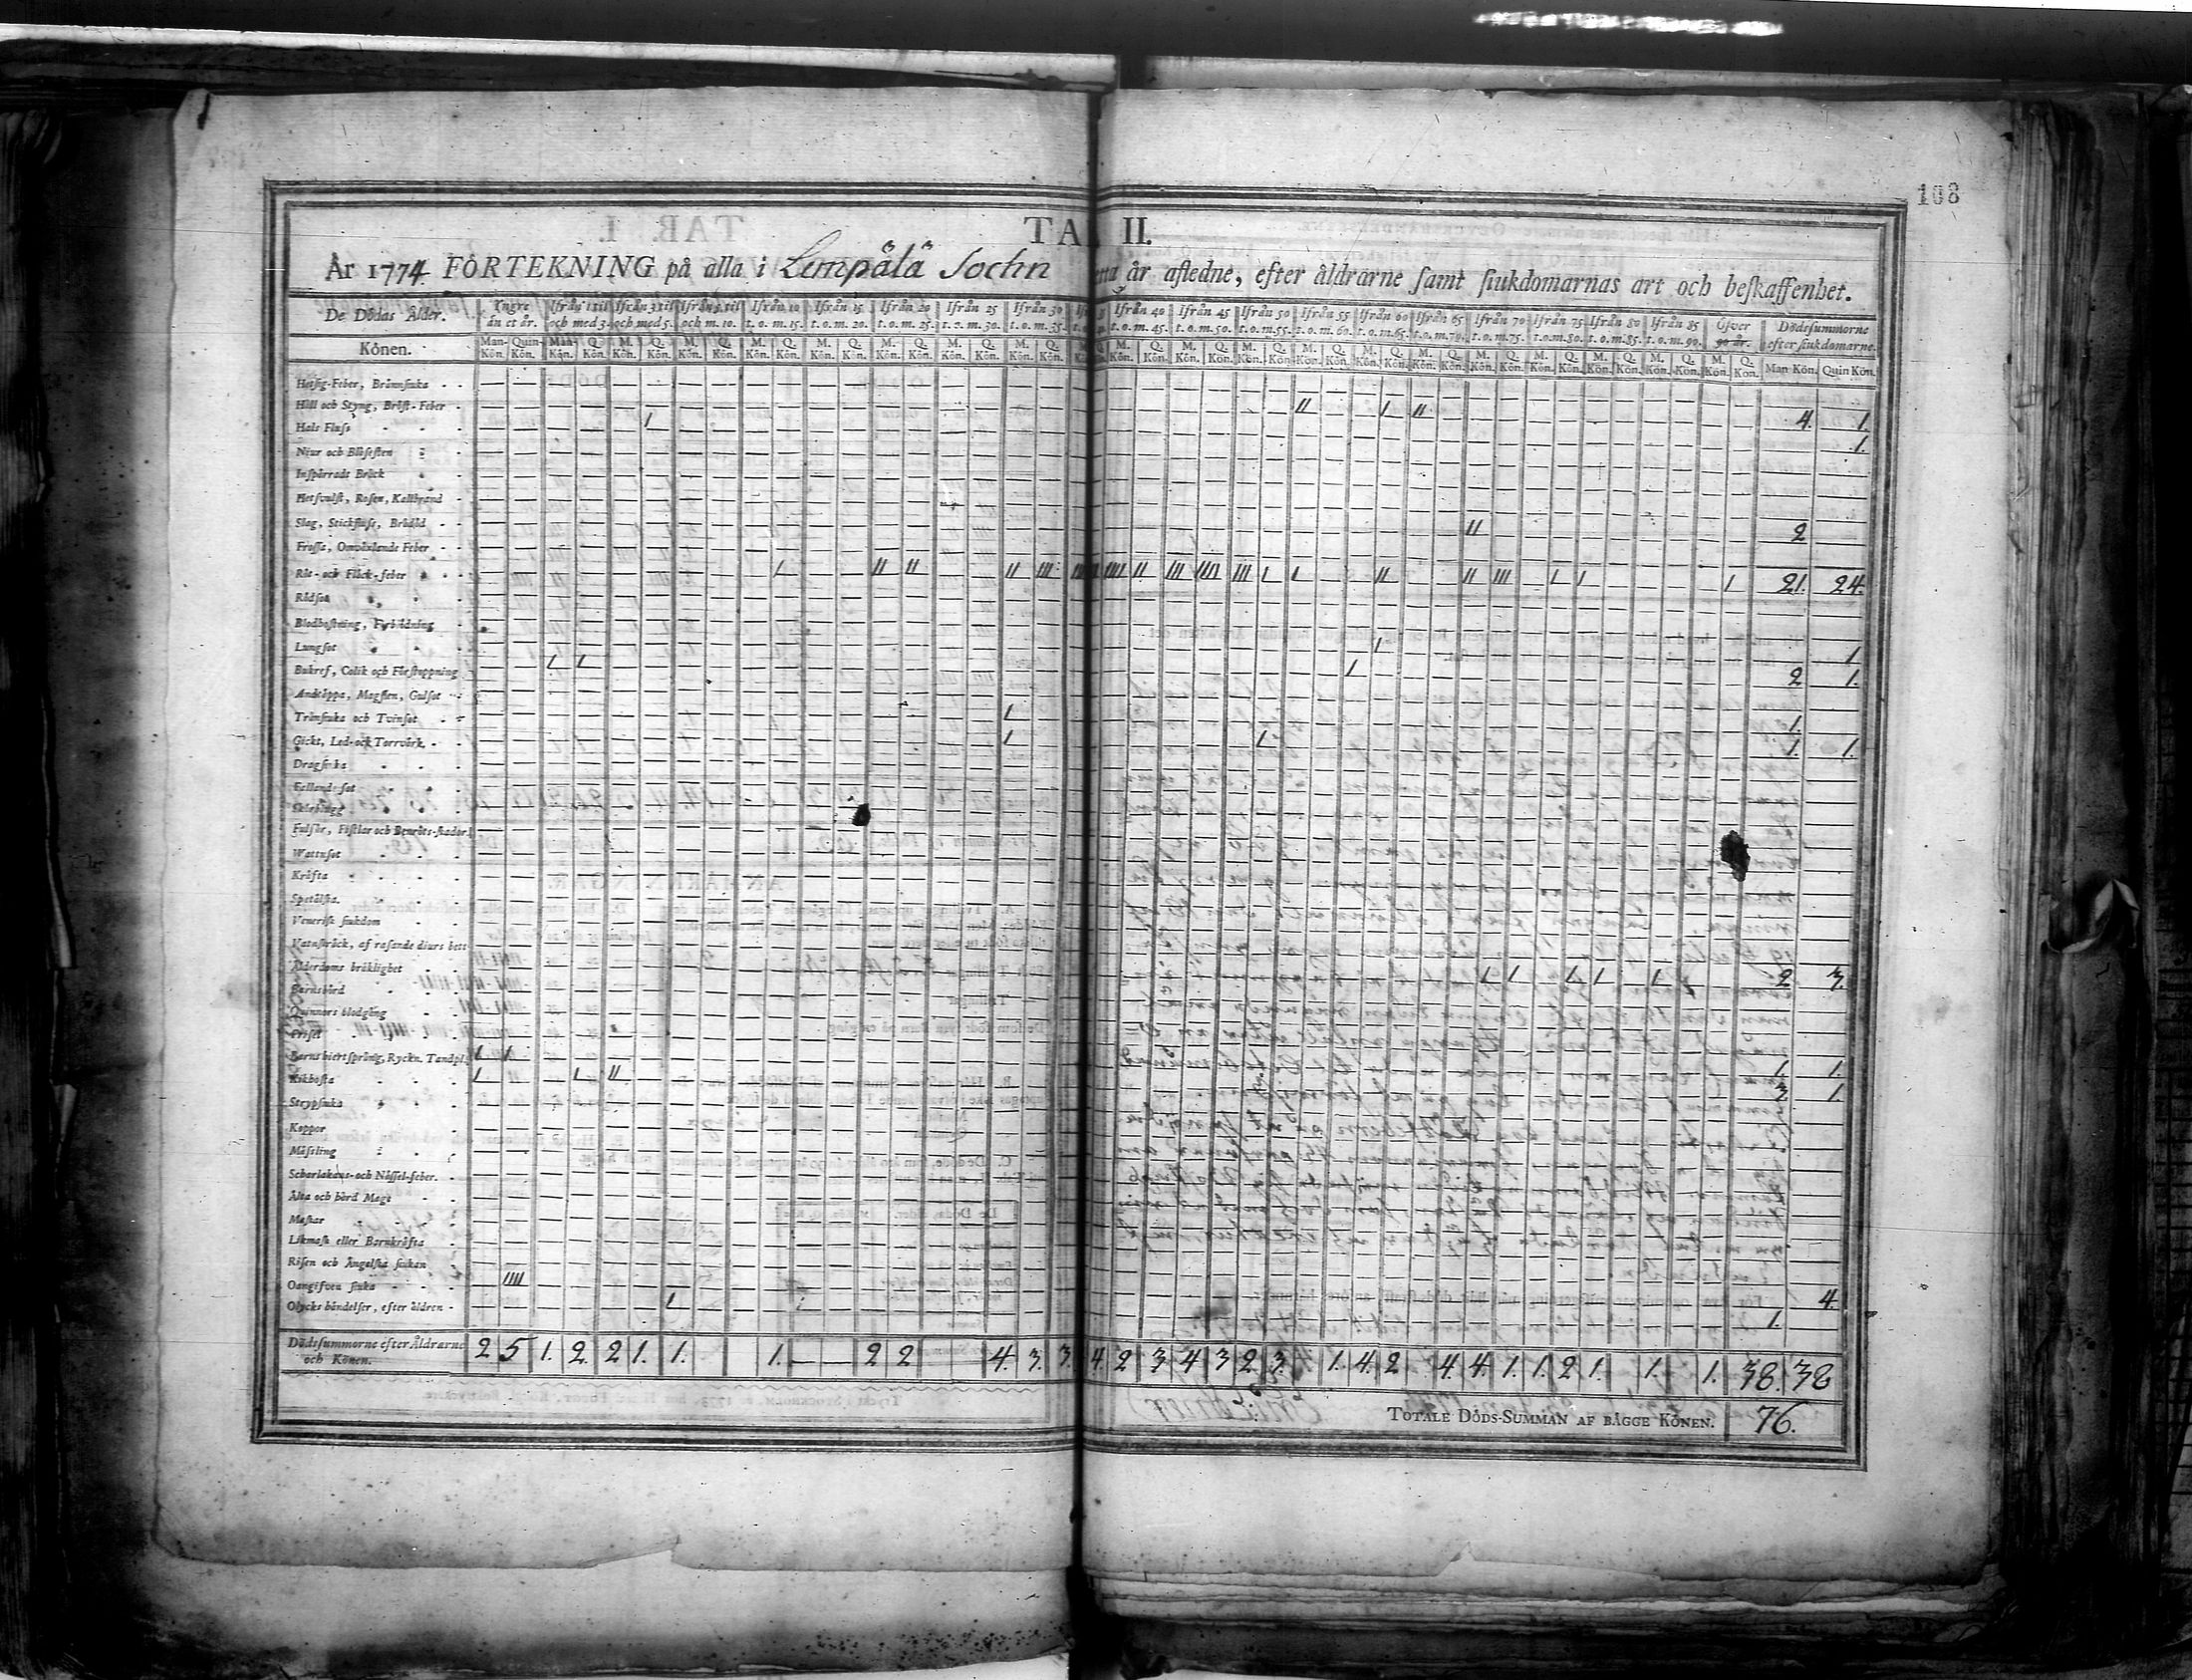 108
TAB. II.
År 1774 FÖRTEKNING på alla i Lempälä Sochn detta år afledne, efter åldrarne samt siukdomarnas art och beskaffenhet.
De Dödas Ålder. Yngre än et år. Ifrån 1 til och med 3. Ifrån 3 til och med 5. Ifrån 5 til och m. 10. Ifrån 10 t. o. m. 15. Ifrån 15 t. o. m. 20. Ifrån 20 t. o. m. 25. Ifrån 25 t. o. m. 30. Ifrån 30 t. o. m. 35. Ifrån 40 t. o. m. 45. Ifrån 45 t. o. m. 50. Ifrån 50 t. o. m. 55. Ifrån 55 t. o. m. 60. Ifrån 60 t. o. m. 65. Ifrån 65 t. o. m. 70. Ifrån 70 t. o. m. 75. Ifrån 75 t. o. m. 80. Ifrån 80 t. o. m. 85. Ifrån 85 t. o. m. 90. Öfver 90 år. Dödssummorne efter siukdomarne.
Könen. Man-Kön. Quin-Kön. Man-Kön. Q. Kön. M. Kön. Q. Kön. Man Kön. Quin Kön.
Hetsig-Feber, Brännsiuka
Håll och Styng, Bröst-Feber II I II 4. 1.
Hals Fluss I 1.
Niur och Blåsesten
Inspärradt Bråck
Hetsvulst, Rosen, Kallbrand
Slag, Stickfluss, Brådöd II 2
Frossa, Omväxlande Feber
Röt- och Fläck-feber I II II II IIII IIII II III IIII III I I II II III I I I 21. 24.
Rödsot
Blodhostning, Förblödning
Lungsot I 1
Bukref, Colik och Förstoppning I I I 2 1.
Andtäppa, Magsten, Gulsot
Trånsiuka och Tvinsot I 1.
Gickt, Led- och Torrvärk I I 1. 1.
Dragsiuka
Fallandesot
Skiörbugg
Fulsår, Fistlar och Benröts-skador
Wattusot
Kräfta
Spetälska.
Venerisk siukdom
Vatuskräck, af rasande diurs bett
Ålderdoms bräklighet I I I I I 2 3.
Barnsbörd
Quinnors blodgång
Frisel
Barns hiertsprång, Ryckn. Tandpl. I I 1. 1.
Kikhosta I I II 3 1.
Strypsiuka
Koppor
Mässling
Scharlakans- och Nässel-feber.
Älta och hård Mage
Maskar
Likmask eller Barnkräfta
Risen och Ängelska siukan
Oangifven siuka IIII 4
Olycks händelser, efter åldren I 1.
Dödssummorne efter Åldrarne och Könen. 2 5 1. 2 2 1. 1. 1. 2 2 4. 3. 3. 4 2 3 4 3 2 3. 1. 4 2 4. 4 1 1. 2 1. 1. 1. 38. 38
TOTALE DÖDS-SUMMAN AF BÄGGE KÖNEN. 76.